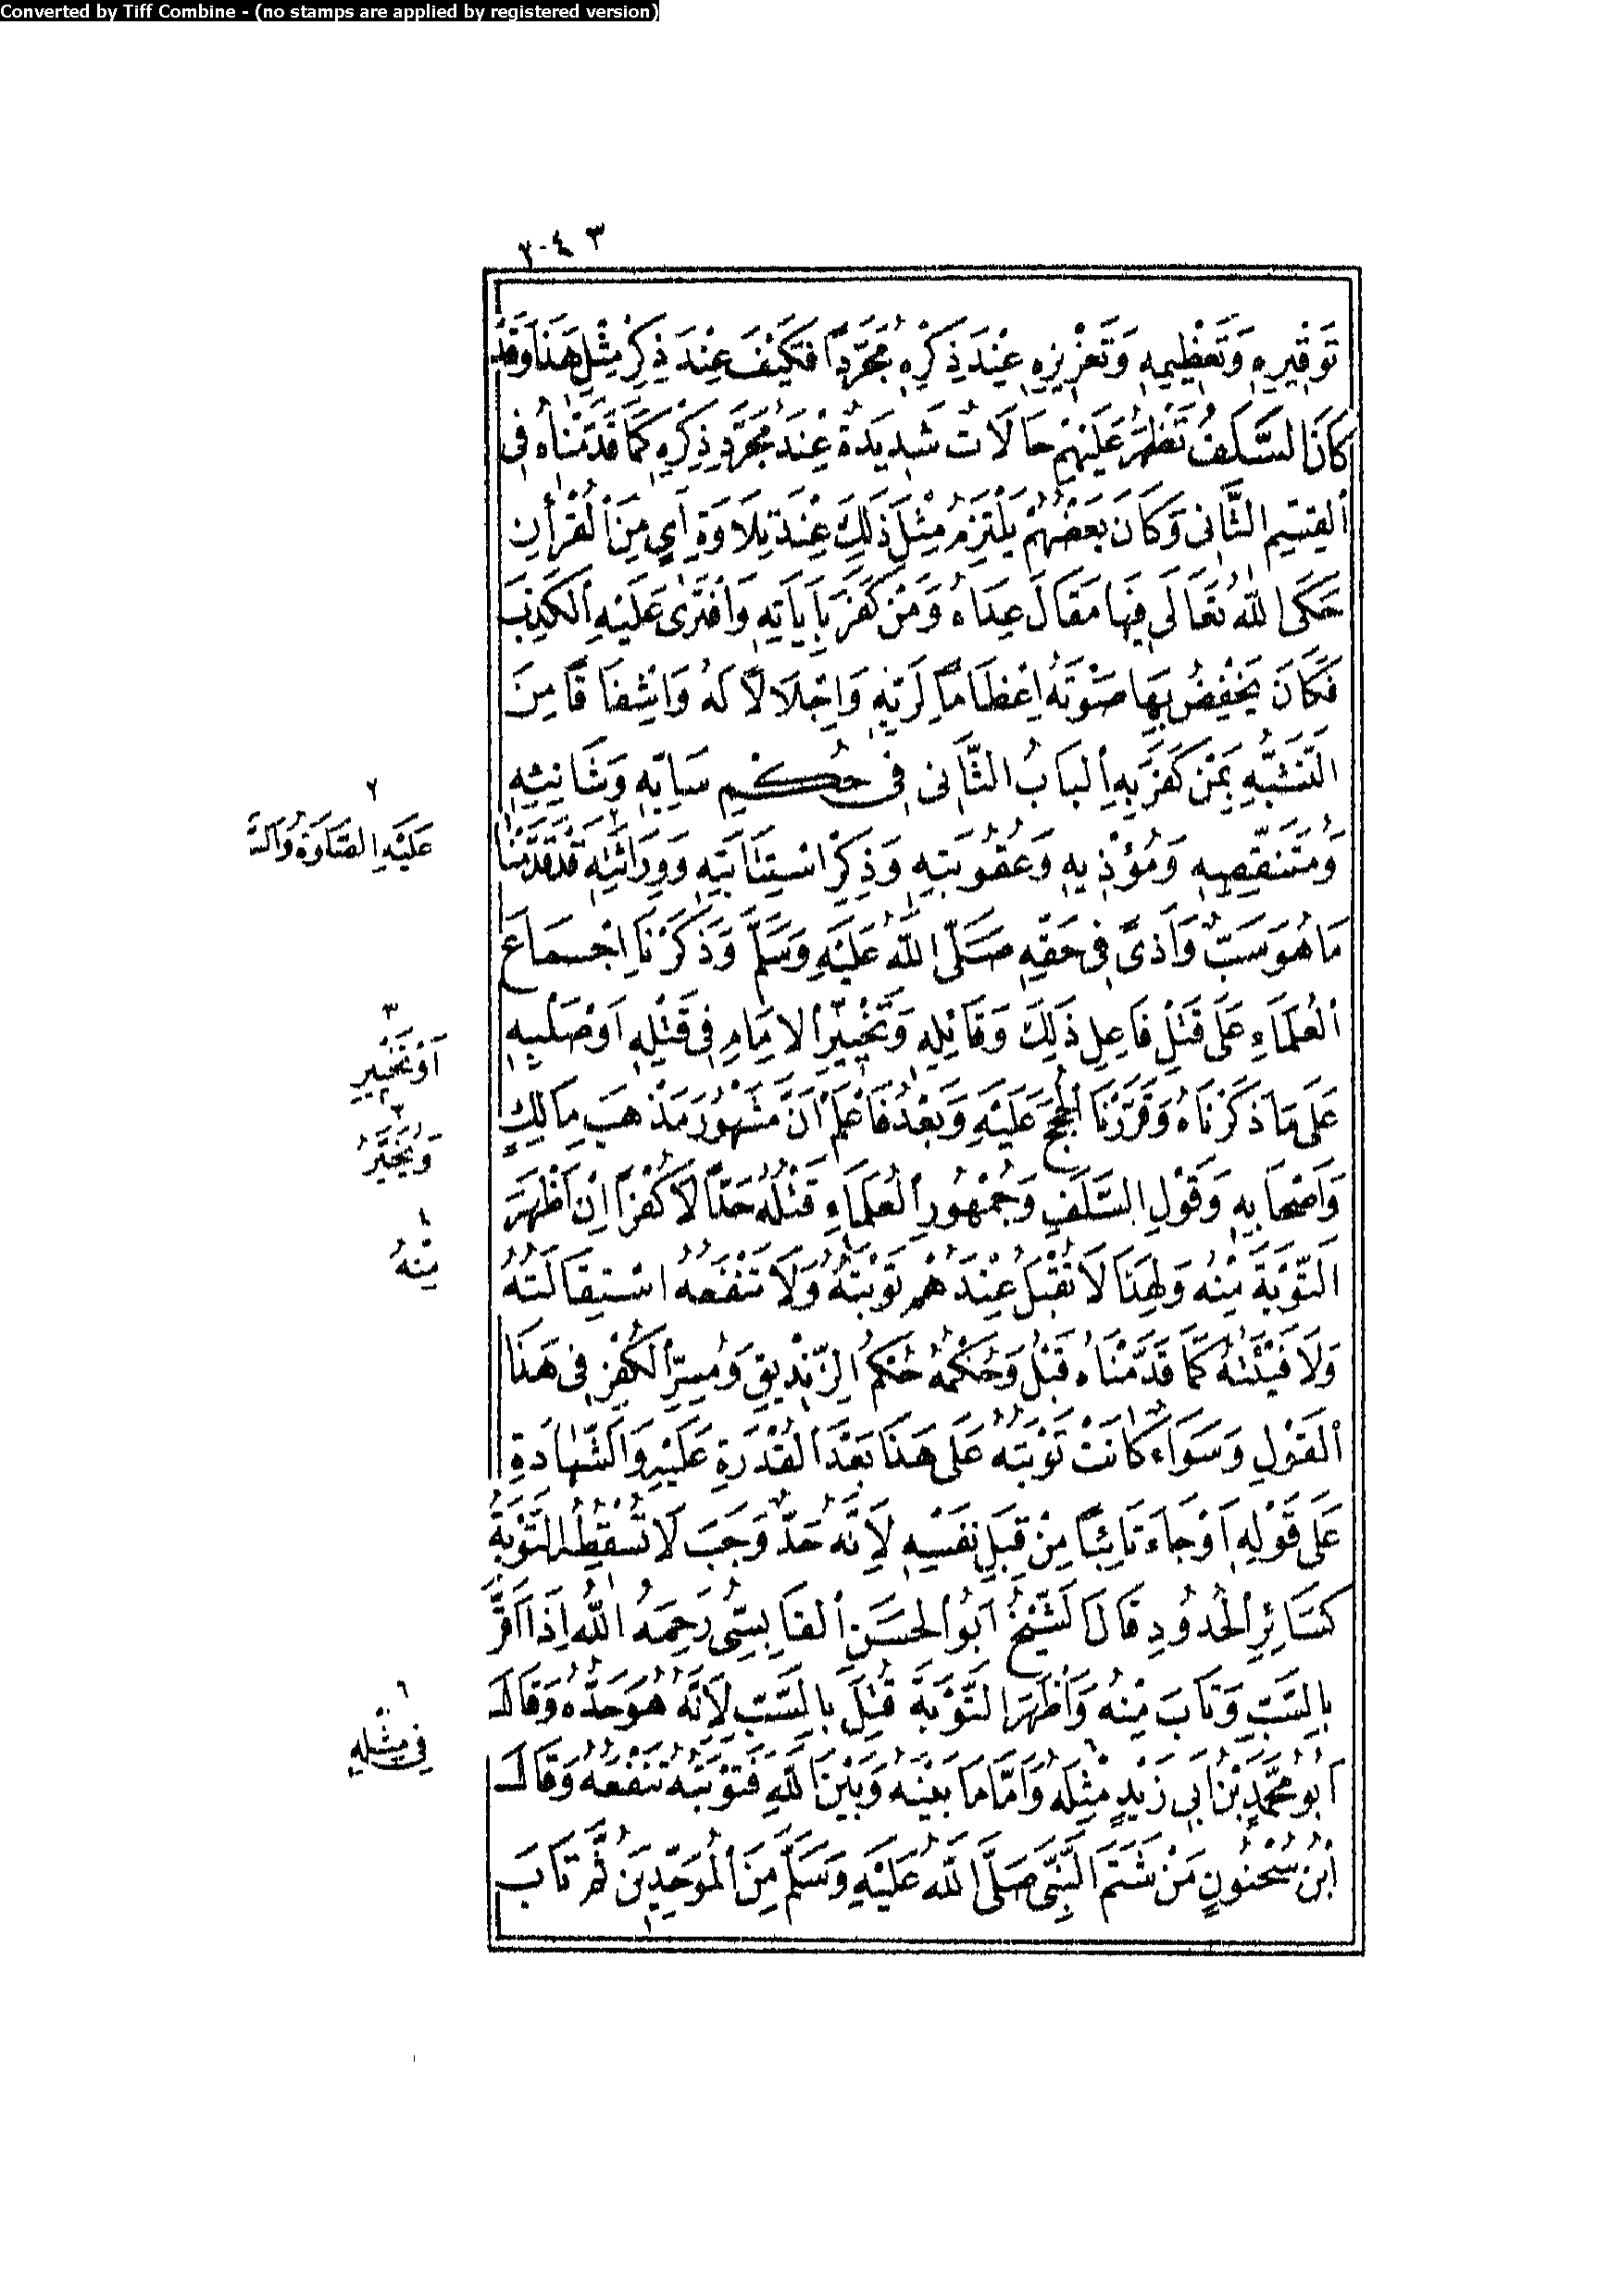 Converted by Tiff Combine - (no stamps are applied by registered version)
٣٠٤ ٣
تَوْقِيرِهِ وَتَعْظِيمِهِ وَتَعْزِيزِهِ عِنْدَ ذِكْرِهِ مُجَرَّدًا فَكَيْفَ عِنْدَ ذِكْرِ مِثْلِ هَذَا وَقَدْ
كَانَ السَّلَفُ تَظْهَرُ عَلَيْهِمْ حَالَاتٌ شَدِيدَةٌ عِنْدَ مُجَرَّدِ ذِكْرِهِ كَمَا قَدَّمْنَاهُ فِي
الْقِسْمِ الثَّانِي وَكَانَ بَعْضُهُمْ يَلْتَزِمُ مِثْلَ ذَلِكَ عِنْدَ تِلَاوَةِ آيٍ مِنَ الْقُرْآنِ
حَكَى اللهُ تَعَالَى فِيهَا مَقَالَ عِدَاهُ وَمَنْ كَفَرَ بِآيَاتِهِ وَافْتَرَى عَلَيْهِ الْكَذِبَ
فَكَانَ يَخْفِضُ بِهَا صَوْتَهُ إِعْظَامًا لِرَبِّهِ وَإِجْلَالًا لَهُ وَإِشْفَاقًا مِنَ
التَّشَبُّهِ بِمَنْ كَفَرَ بِهِ الْبَابُ الثَّانِي فِي حُكْمِ سَابِّهِ وَشَانِئِهِ
وَمُتَنَقِّصِهِ وَمُؤْذِيهِ وَعُقُوبَتِهِ وَذِكْرِ اسْتِتَابَتِهِ وَوِرَاثَتِهِ قَدْ قَدَّمْنَا
مَا هُوَ سَبٌّ وَأَذًى فِي حَقِّهِ صَلَّى اللهُ عَلَيْهِ وَسَلَّمَ وَذَكَرْنَا إِجْمَاعَ
الْعُلَمَاءِ عَلَى قَتْلِ فَاعِلِ ذَلِكَ وَقَائِلِهِ وَتَخْيِيرِ الْإِمَامِ فِي قَتْلِهِ أَوْ صَلْبِهِ
عَلَى مَا ذَكَرْنَاهُ وَقَرَّرْنَا الْحُجَجَ عَلَيْهِ وَبَعْدُ فَاعْلَمْ أَنَّ مَشْهُورَ مَذْهَبِ مَالِكٍ
وَأَصْحَابِهِ وَقَوْلِ السَّلَفِ وَجُمْهُورِ الْعُلَمَاءِ قَتْلُهُ حَدًّا لَا كُفْرًا إِنْ أَظْهَرَ
التَّوْبَةَ مِنْهُ وَلِهَذَا لَا تُقْبَلُ عِنْدَهُمْ تَوْبَتُهُ وَلَا تَنْفَعُهُ اسْتِقَالَتُهُ
وَلَا فَيْئَتُهُ كَمَا قَدَّمْنَاهُ قَبْلُ وَحُكْمُهُ حُكْمُ الزِّنْدِيقِ وَمُسِرِّ الْكُفْرِ فِي هَذَا
الْقَوْلِ وَسَوَاءٌ كَانَتْ تَوْبَتُهُ عَلَى هَذَا بَعْدَ الْقُدْرَةِ عَلَيْهِ وَالشَّهَادَةِ
عَلَى قَوْلِهِ أَوْ جَاءَ تَائِبًا مِنْ قِبَلِ نَفْسِهِ لِأَنَّهُ حَدٌّ وَجَبَ لَا تُسْقِطُهُ التَّوْبَةُ
كَسَائِرِ الْحُدُودِ قَالَ الشَّيْخُ أَبُو الْحَسَنِ الْقَابِسِيُّ رَحِمَهُ اللهُ إِذَا أَقَرَّ
بِالسَّبِّ وَتَابَ مِنْهُ وَأَظْهَرَ التَّوْبَةَ قُتِلَ بِالسَّبِّ لِأَنَّهُ هُوَ حَدُّهُ وَقَالَ
أَبُو مُحَمَّدِ بْنُ أَبِي زَيْدٍ مِثْلَهُ وَأَمَّا مَا بَيْنَهُ وَبَيْنَ اللهِ فَتَوْبَتُهُ تَنْفَعُهُ وَقَالَ
ابْنُ سُحْنُونٍ مَنْ شَتَمَ النَّبِيَّ صَلَّى اللهُ عَلَيْهِ وَسَلَّمَ مِنَ الْمُوَحِّدِينَ ثُمَّ تَابَ
٢
عَلَيْهِ الصَّلَوةُ وَالسَّ
٣
أَوْ تَخْيِيرِ
٣
وَيُخَيَّرُ
٤
مِنْهُ
٦
فِي مِثْلِهِ